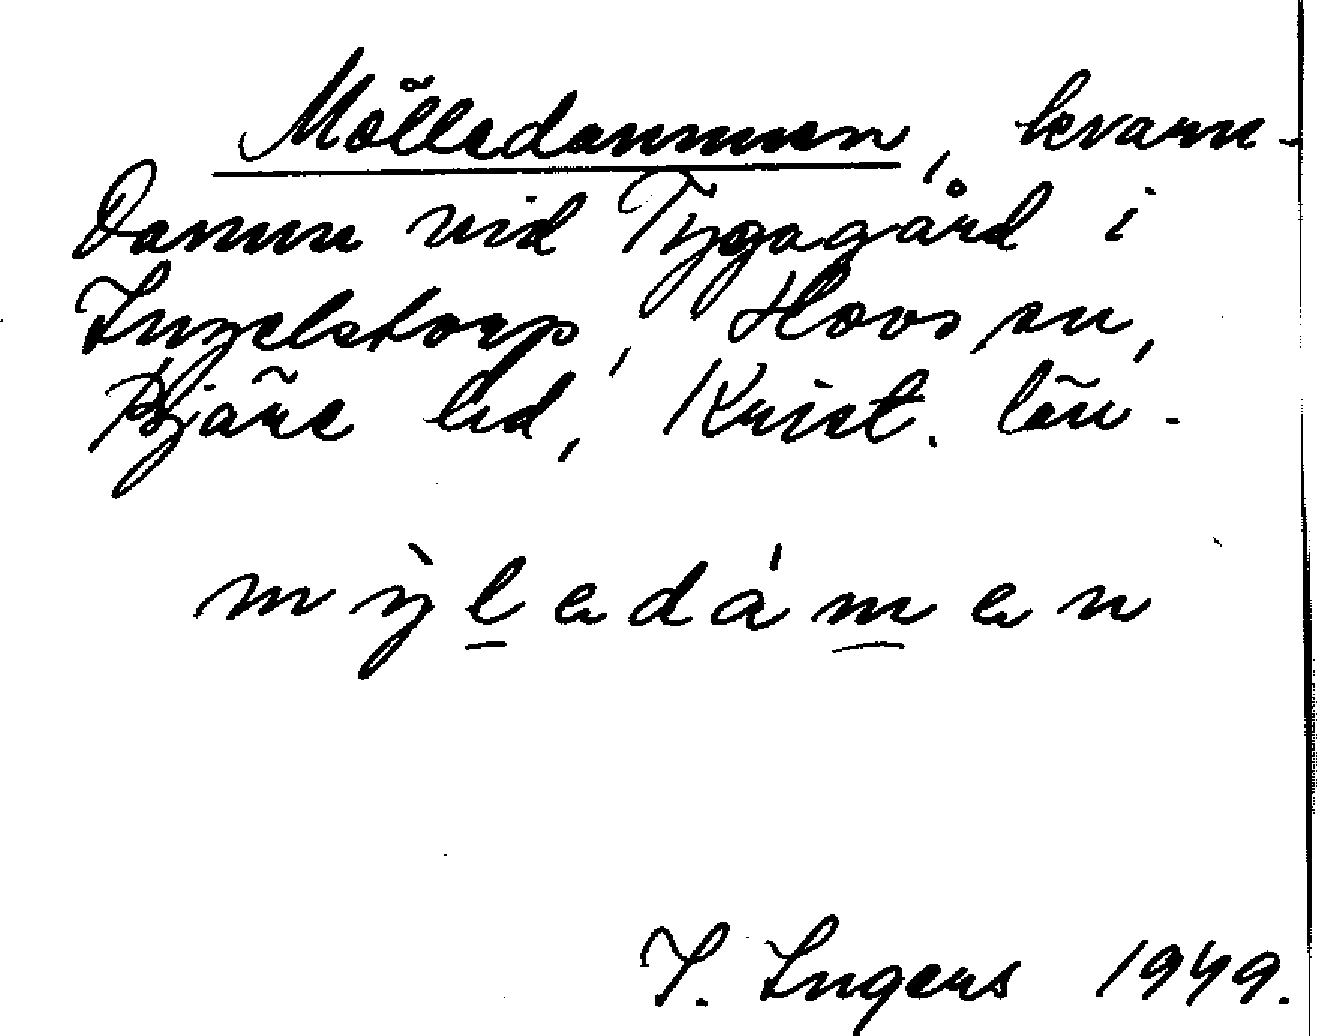 Mölledammen, kvarn-
damm vid Tygagård i
Ingelstorp, Hovs sn,
Bjäre hd, Krist. län.
mỳlɐdámɐn
I. Ingers 1949.